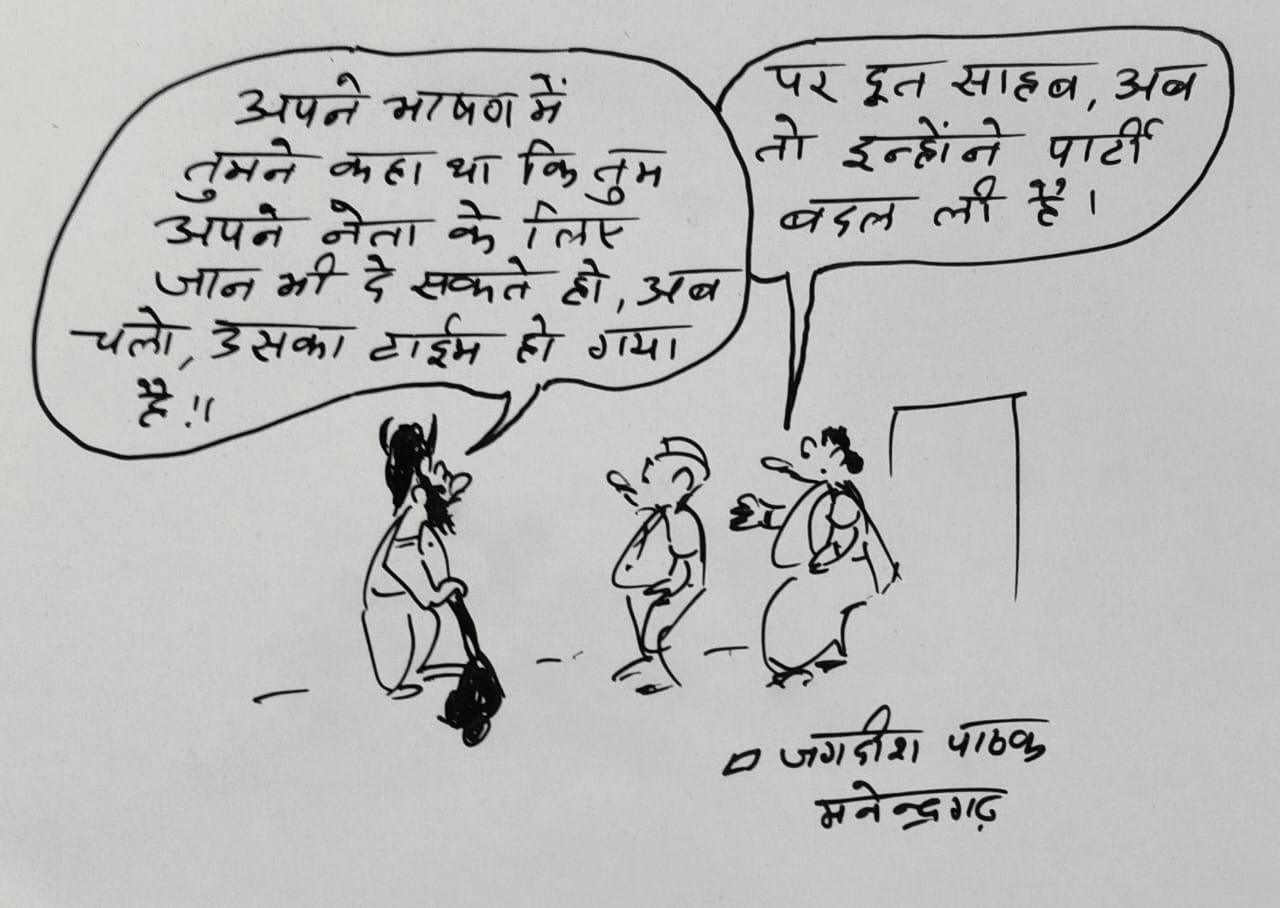 अपने भाषण में
तुमने कहा था कि तुम
अपने नेता के लिए
जान भी दे सकते हो, अब
चलो, उसका टाईम हो गया
है!!
पर दूत साहब, अब
तो इन्होंने पार्टी
बदल ली है।
जगदीश पाठक
मनेन्द्रगढ़